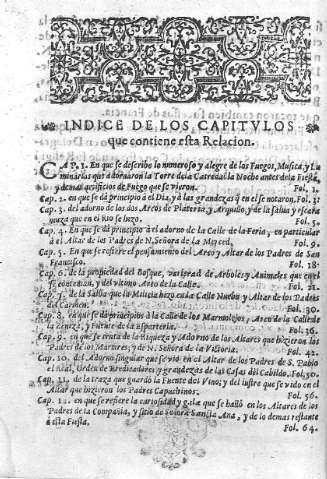 INDICE DE LOS CAPITVLOS
que contiene esta Relacion.
CAP. 1. En que se describe lo numeroso y alegre de los Fuegos, Musica, y Lu
minarias que adornaron la Torre de la Catredal la Noche antes de la Fiesta,
y demas artificios de Fuego que se vieron. Fol. 1.
Cap. 2. en que se dà principio a el Dia, y à las grandezas q en el se notaron, Fol. 3.
Cap. 3. del adorno de los dos Arcos de Plateria, y Arquillo, y de la salua y
que en el Rio se hizo. Fol. 5.
Cap. 4. En que se dà principio à el adorno de la Calle de la Feria, en particular
à el Altar de los Padres de N. Señora de la Merced, Fol. 9.
Cap. 5. En que se refiere el pensamiento del Arco y Altar de los Padres de San
Francisco. Fol. 18.
Cap. 6. de la propiedad del Bosque, variedad de Arboles, y Animales que en el
se contenian, y del vltimo Arco de la Calle. Fol. 21.
Cap. 7. de la Salua que la Milicia hizo en la Calle Nueba y Altar de los Padres
del Carmen. Fol. 30.
Cap. 8. en que se dà principio à la Calle de Marmolejos, Arco de la Calle de
la Zeniza, y Fuente de la Esparteria. Fol. 36.
Cap. 9. en que se trata de la Riqueza y Adorno de los Altares que hizieron los
Padres de los Martyres, y de N. Señora de la Victoria. Fol. 42.
Cap. 10. del Adorno singular que se viò en el Altar de los Padres de S. Pablo
el Real, Orden de Predicadores y grandezas de las Casas del Cabildo. Fol. 50.
Cap. 11. de la traza que guardò la Fuente del Vino, y del lustre que se vido en el
Altar que hizieron los Padres Capuchinos. Fol. 56.
Cap. 12. en que se refiere la curiosidad y gala que se hallò en los Altares de los
Padres de la Compañia, y sitio de Señora Santa Ana, y de lo demas restante
à esta Fiesta. Fol. 64.